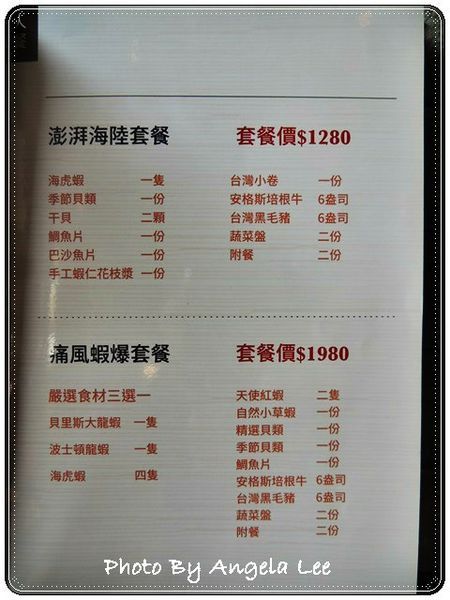 澎湃海陸套餐 套餐價$1280
海虎蝦 一隻
季節貝類 一份
干貝 二顆
鯛魚片 一份
巴沙魚片 一份
手工蝦仁花枝漿 一份
台灣小卷 一份
安格斯培根牛 6盎司
台灣黑毛豬 6盎司
蔬菜盤 二份
附餐 二份
痛風蝦爆套餐 套餐價$1980
嚴選食材三選一
貝里斯大龍蝦 一隻
波士頓龍蝦 一隻
海虎蝦 四隻
天使紅蝦 二隻
自然小草蝦 一份
精選貝類 一份
季節貝類 一份
鯛魚片 一份
安格斯培根牛 6盎司
台灣黑毛豬 6盎司
蔬菜盤 二份
附餐 二份
Photo By Angela Lee